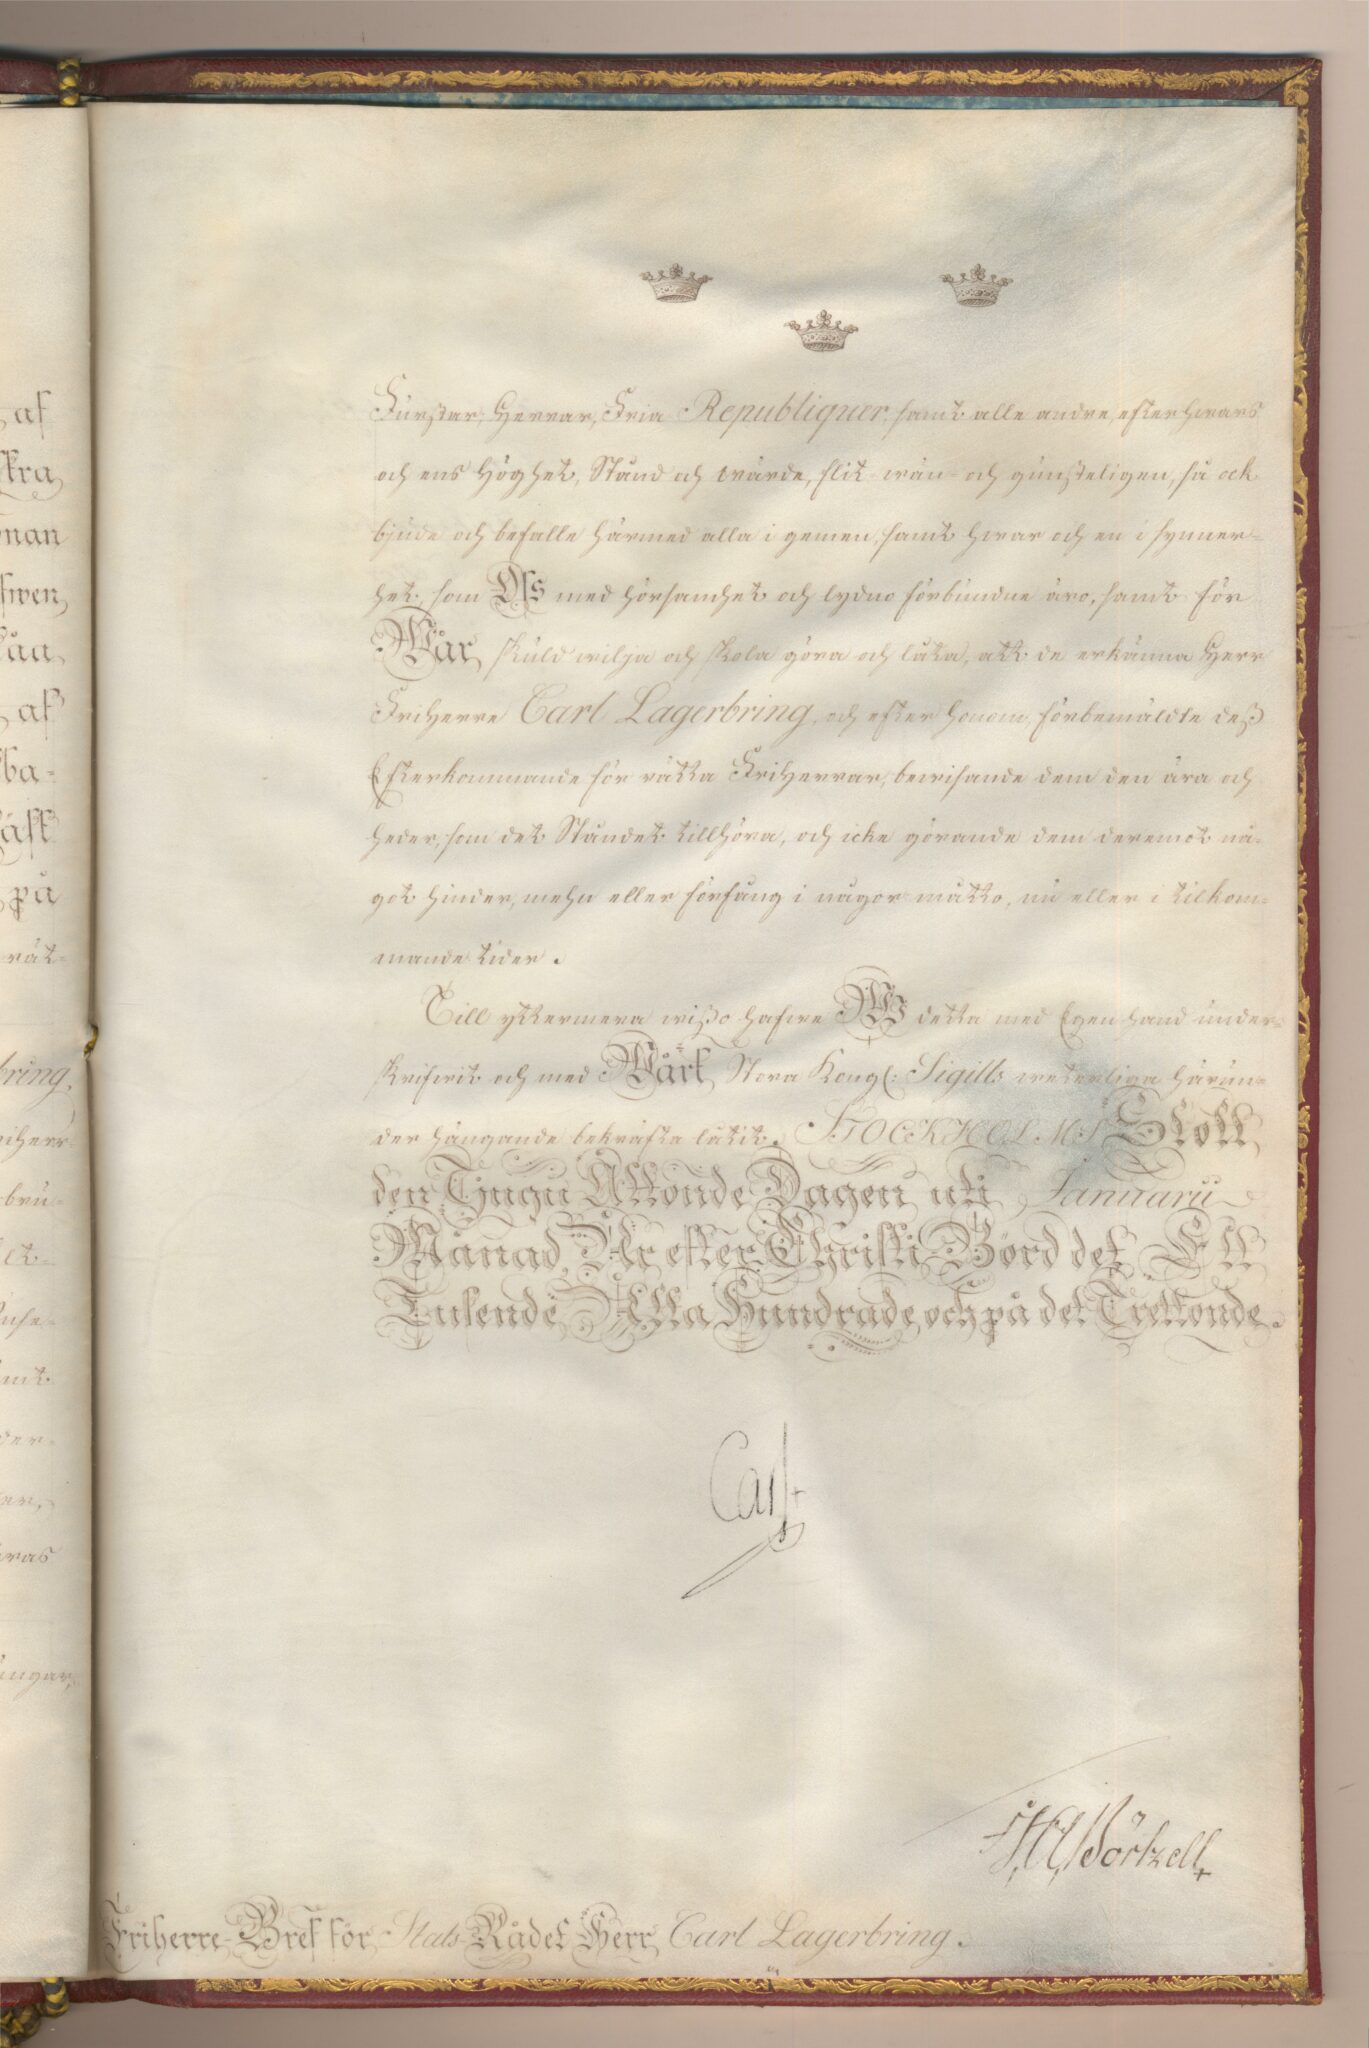 af
kra
nan
swen
 
af
ba-
 
på
rät-
bring,
riherr-
bru-
Furstar, Herrar, Fria Republiquer, samt alle andre, efter hwars
och ens Höghet, Stånd och wärde, flit- wän- och gunsteligen, så ock
bjude och befalle härmed alla i gemen, samt hwar och en i synner-
het, som Oss med hörsamhet och lydno förbundne äro, samt för
Wår skuld wilja och skola göra och låta, att de erkänna Herr
Friherre Carl Lagerbring, och efter honom, förbemäldte deß
Efterkommande för rätta Friherrar, bewisande dem den ära och
heder, som det Ståndet tillhöra, och icke görande dem deremot nå-
got hinder, mehn eller förfång i någor måtto, nu eller i tilkom-
mande tider.
Till yttermera wißo hafwe Wi detta med Egen hand under-
skrifwit och med Wårt Stora Kongl: Sigill weterliga härun-
der hängande bekräfta låtit. STOCKHOLMS Slott
den Tjugu Attonde Dagen uti Januarii
Månad, År efter Christi Börd det Ett
Tusende Åtta Hundrade och på det Trettonde.
Carl
Börtzell
Friherre-Bref för Stats Rådet Herr Carl Lagerbring.